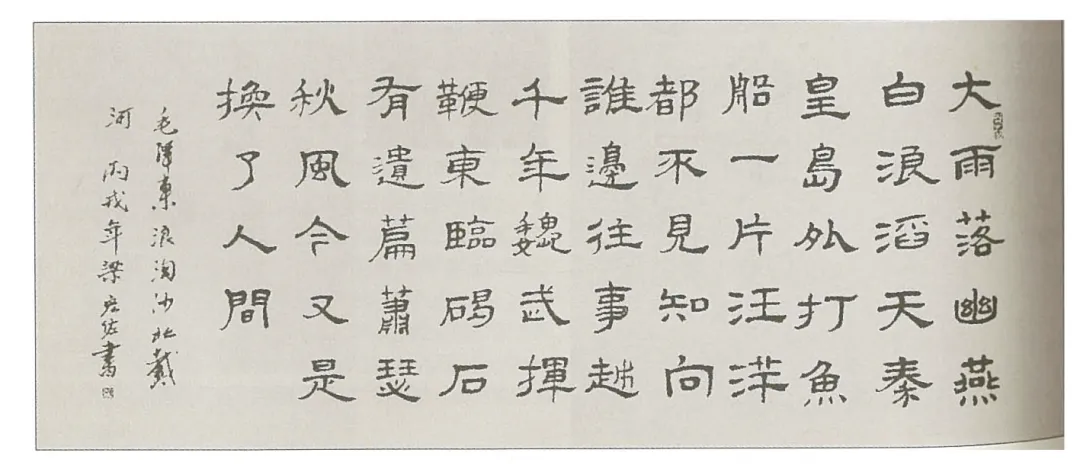 大雨落幽燕
白浪滔天秦
皇島外打魚
船一片汪洋
都不見知向
誰邊往事越
千年魏武揮
鞭東臨碣石
有遺篇蕭瑟
秋風今又是
換了人間
毛澤東浪淘沙北戴
河 丙戌年梁佐書